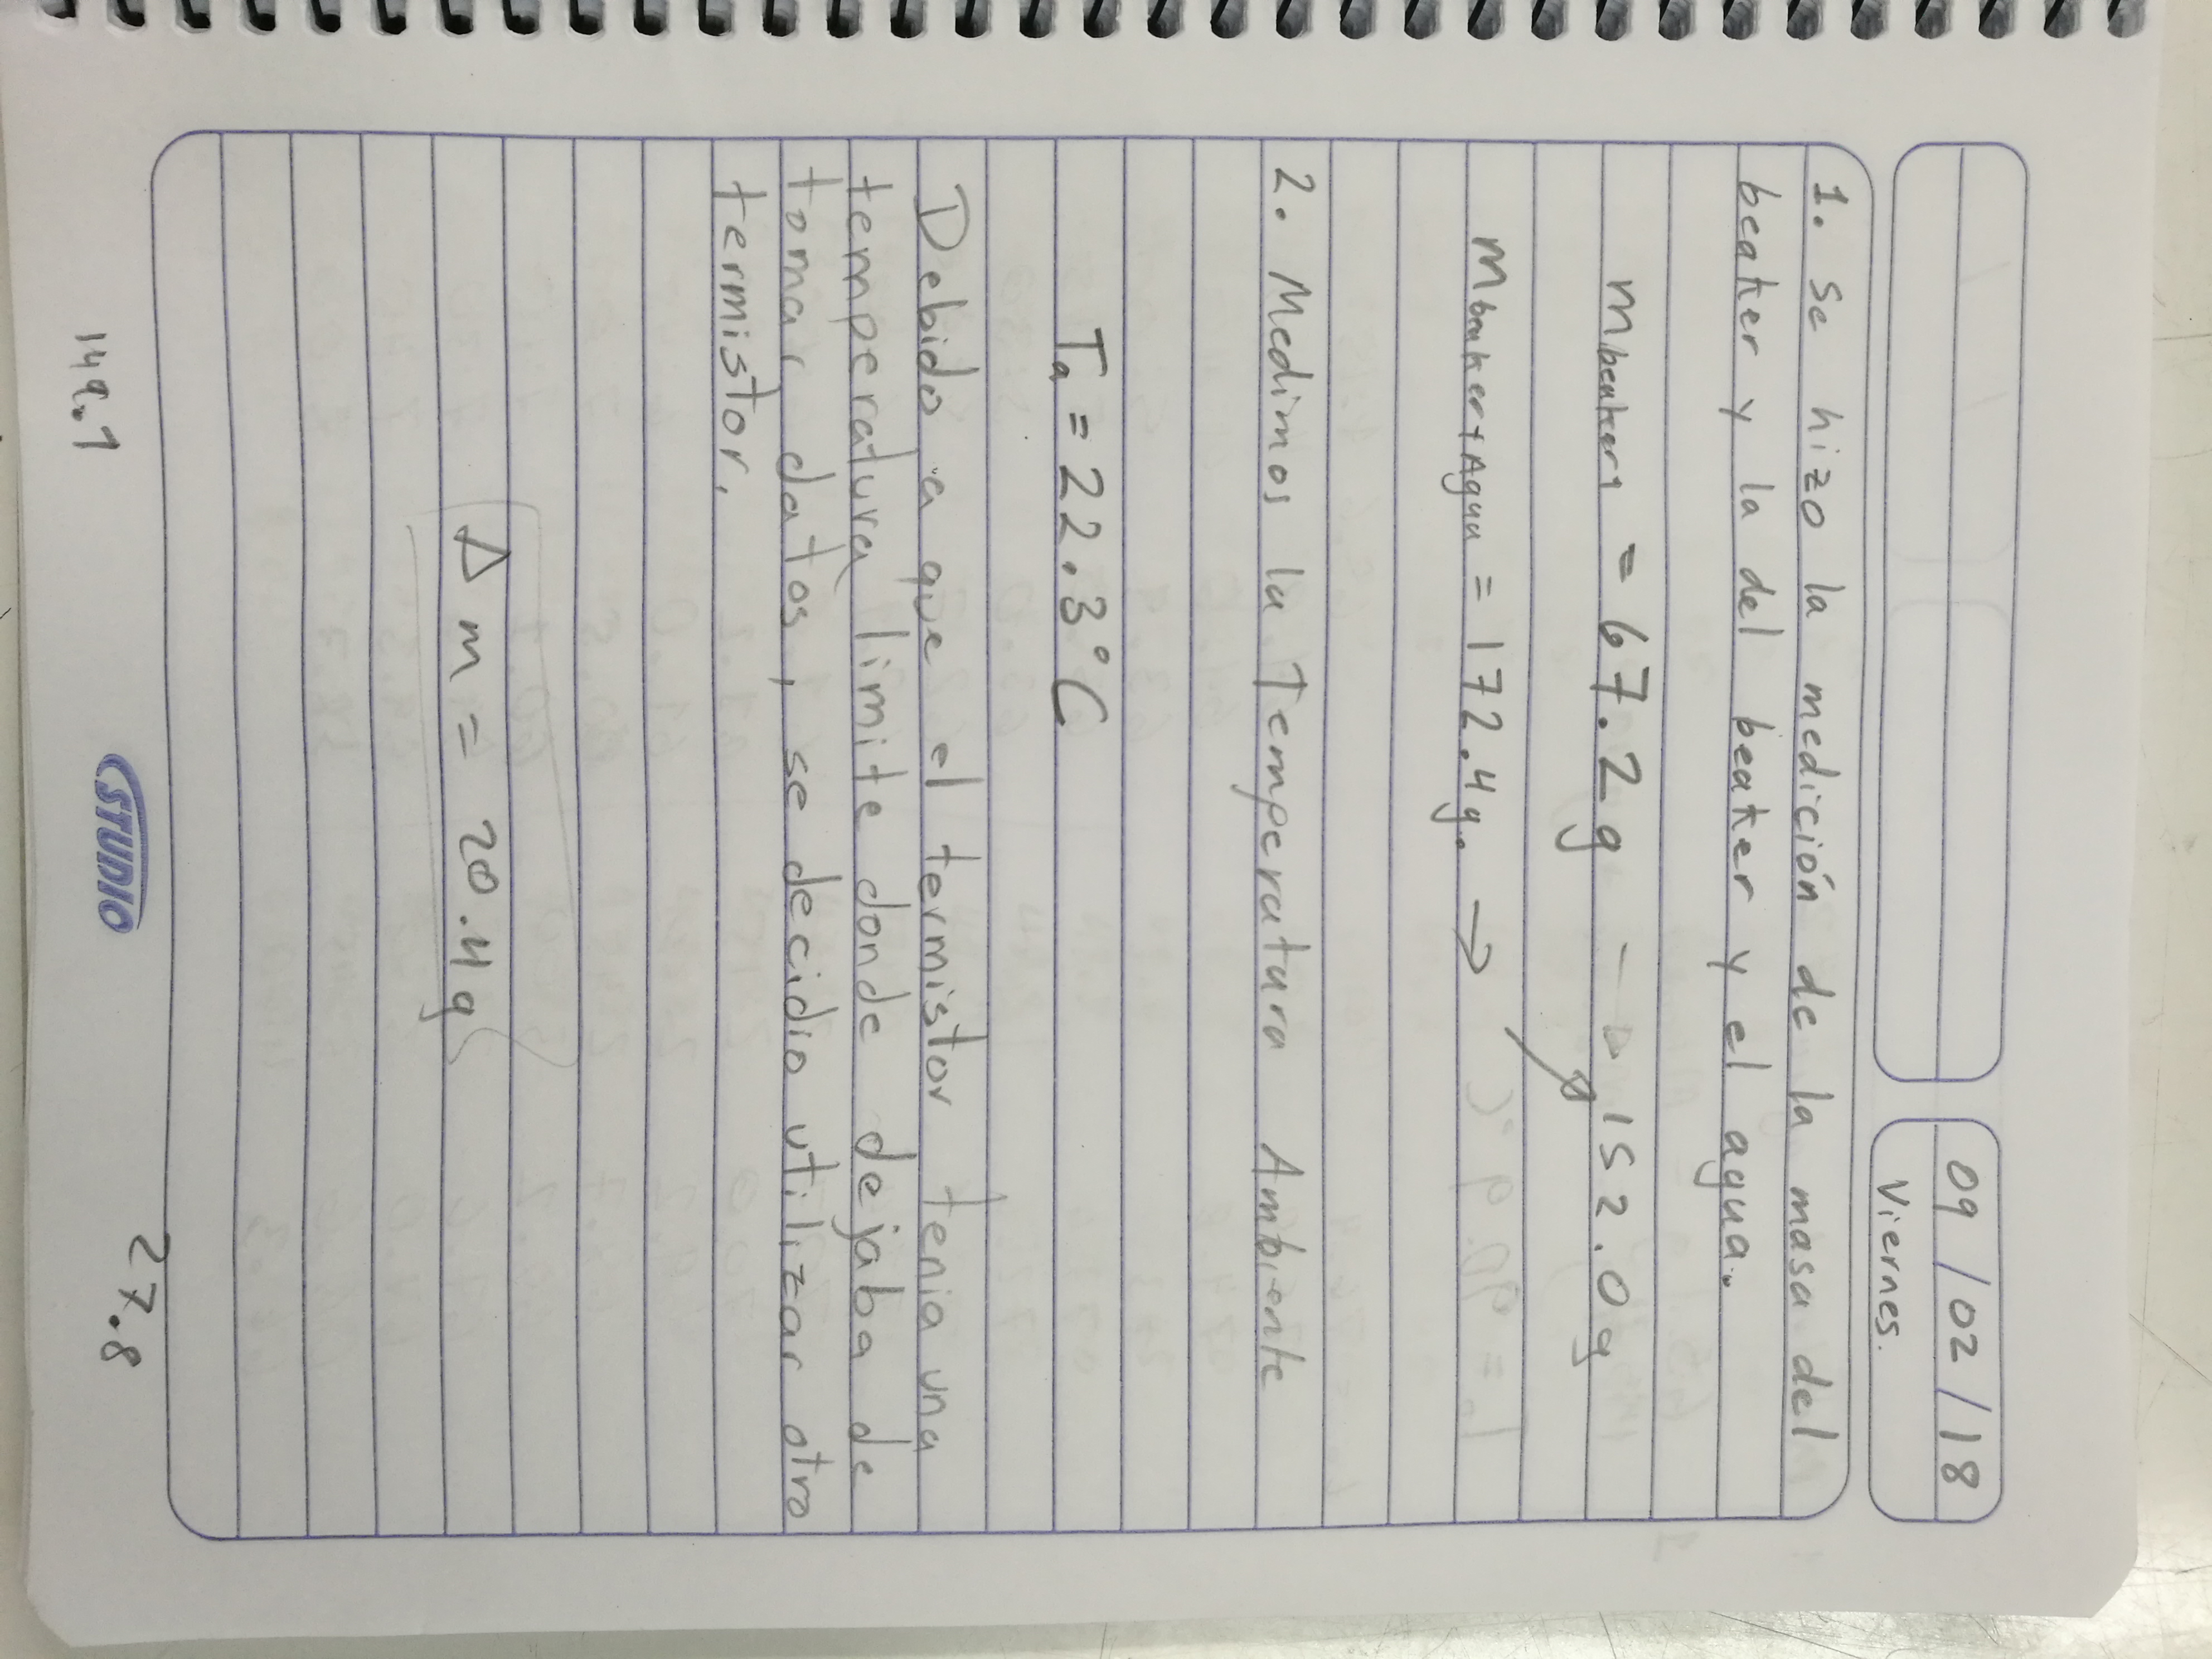 09/02/18
Viernes.
1. se hizo la medición de la masa del
beaker y la del beaker y el agua.
m beaker1 = 67.2g → 152.0g
m beaker+Agua = 172.4g. →
2. Medimos la Temperatura Ambiente
Ta = 22.3°C
Debido a que el termistor tenia una
temperatura limite donde dejaba de
tomar datos, se decidio utilizar otro
termistor.
Δm = 20.4g
149.1
STUDIO
27.8